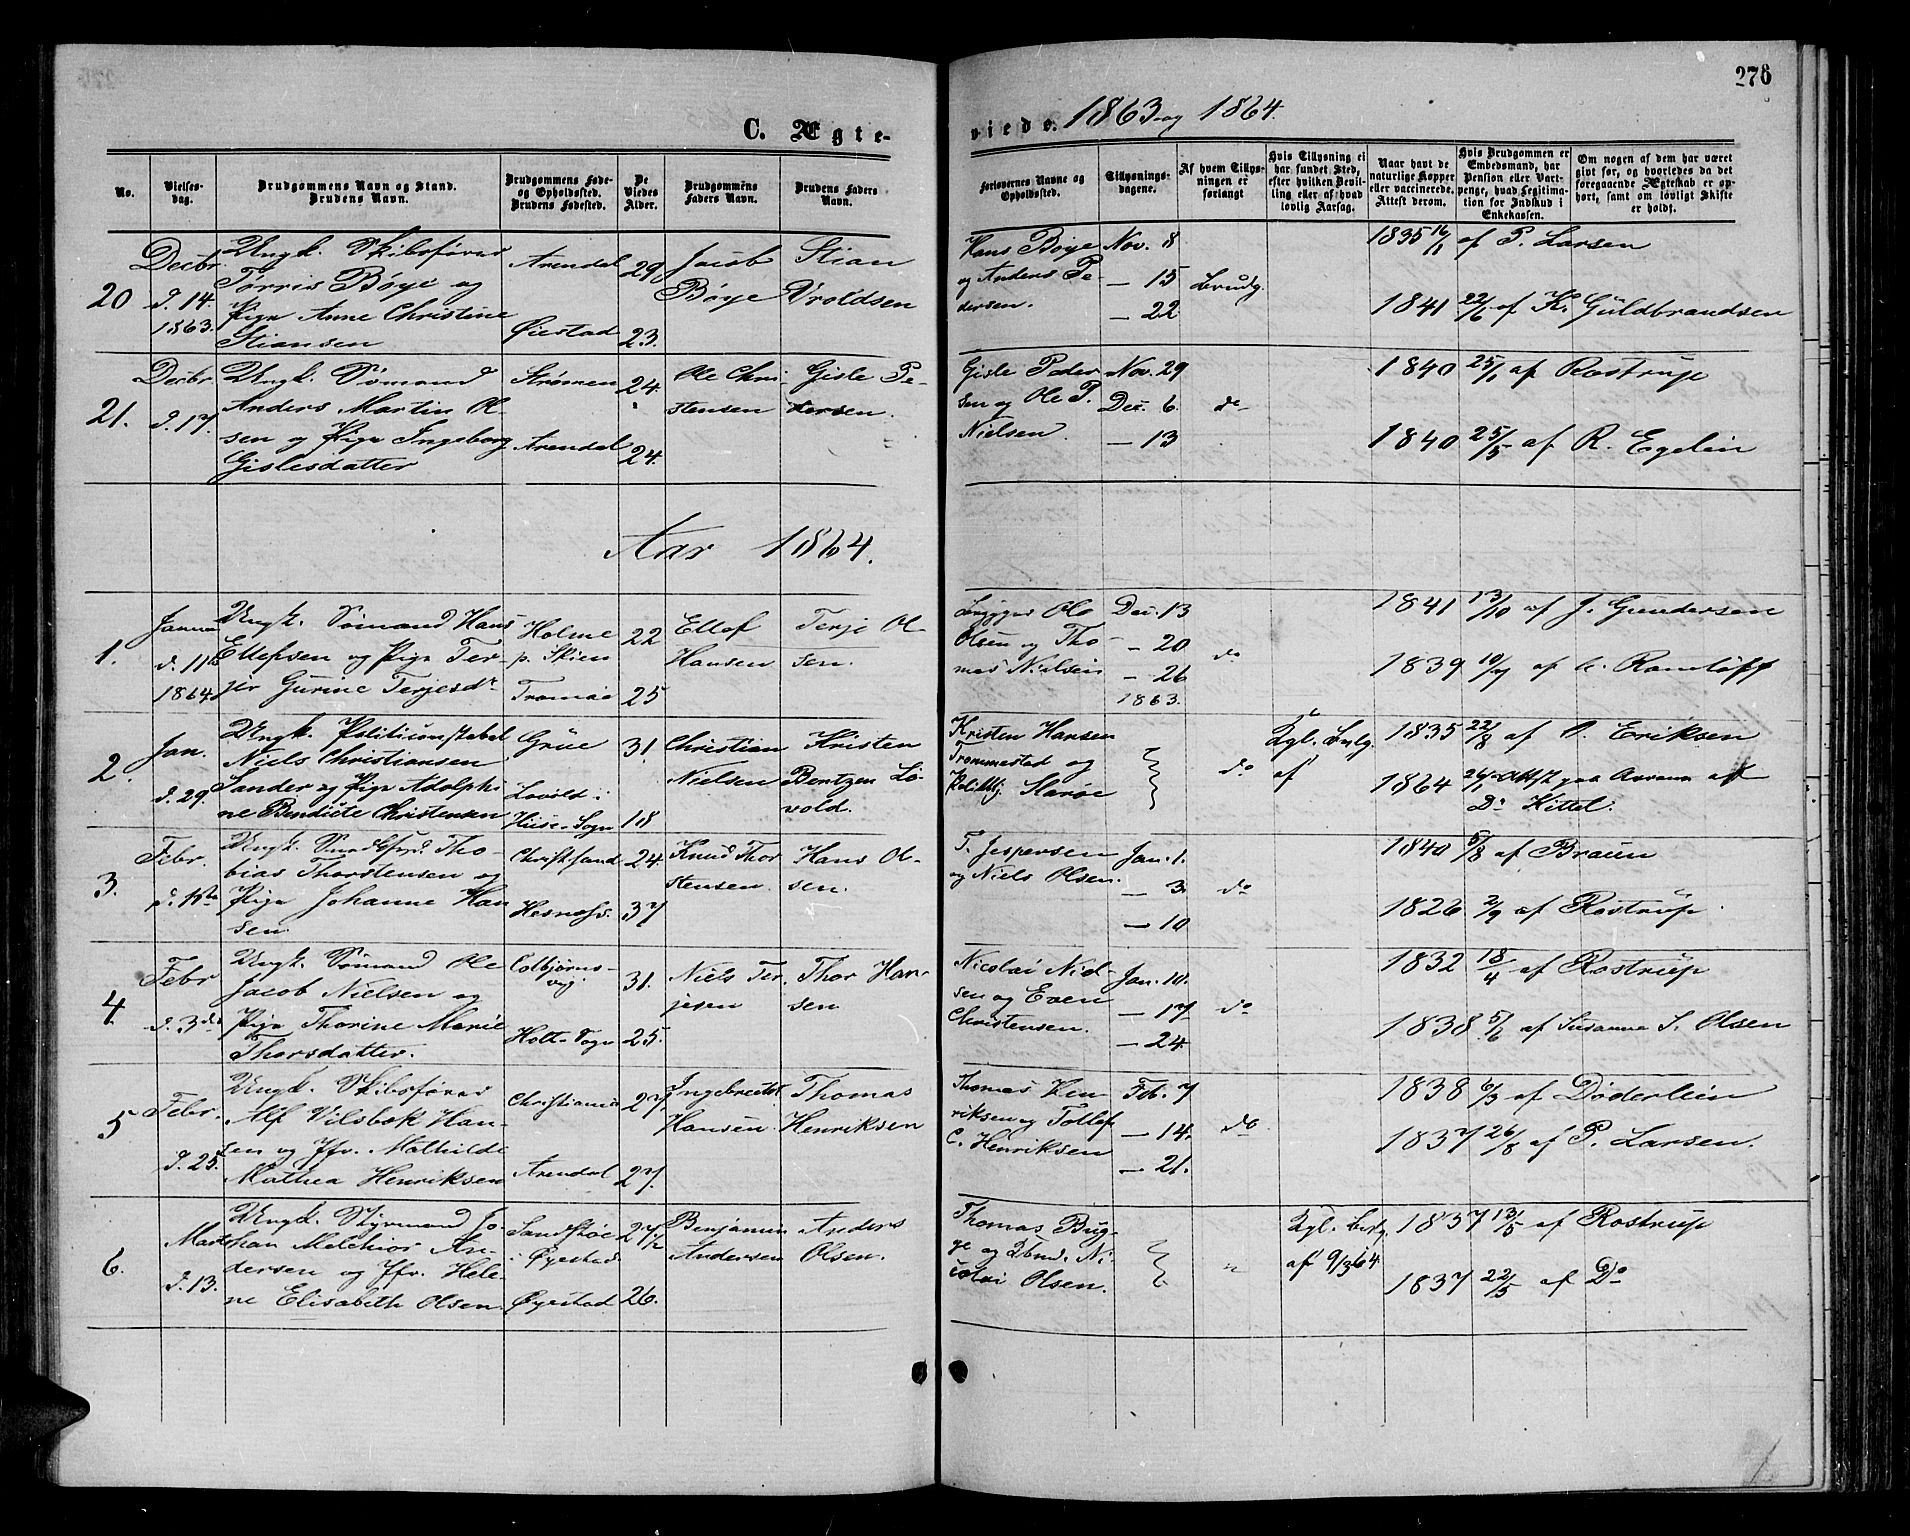 276
C. Ægte-
viede. 1863 og 1864.
No.
Vielses-
dag.
Brudgommens Navn og Stand.
Brudens Navn.
Brudgommens Føde-
og Opholdssted.
Brudens Fødested.
De
Viedes
Alder.
Brudgommens
Faders Navn.
Brudens Faders
Navn.
Forlovernes Navne og
Opholdssted.
Tillysnings-
dagene.
Af hvem Tillys-
ningen er
forlangt
Hvis Tillysning ei
har fundet Sted,
efter hvilken Bevil-
ling eller af hvad
lovlig Aarsag.
Naar havt de
naturlige Kopper
eller vaccinerede.
Attest derom.
Hvis Brudgommen er
Embedsmand, har
Pension eller Vart-
penge, hvad Legitima-
tion for Indskud i
Enkekassen.
Om nogen af dem har været
gift før, og hvorledes da det
foregaaende Ægteskab er op-
hørt, samt om lovligt Skifte
er holdt.
20
Decbr.
d. 14.
1863.
Ungk. Skibsfører
Tørris Bøye og
Pige Anne Christine
Stiansen
Arendal
Øiestad
29
23.
Jacob
Bøye
Stian
Vroldsen
Hans Bøye
og Anders Pe-
dersen.
Nov. 8
— 15
— 22
Brudg.
1835 16/11 af P. Larsen
1841 22/6 af K. Guldbrandsen
21.
Decbr.
d. 17.
Ungk. Sømand
Anders Martin Ol-
sen og Pige Ingeborg
Gislesdatter
Strømen
Arendal
24.
24.
Ole Chri-
stensen
Gisle Pe-
dersen.
Gisle Peder
sen og Ole P.
Nielsen.
Nov. 29
Dec. 6.
— 13
do
1840 25/1 af Rostrup
1840 25/5 af R. Egelin
Aar 1864.
1.
Janua
d. 11te
1864
Ungk. Sømand Hans
Ellefsen og Pige Ter-
jir Gurine Terjesdr
Holme
p. Skien
Tromøe
22
25
Ellef
Hansen
Terje Ol-
sen.
Ole
Olsen og Tho-
mas Nielsen
Dec. 13
— 20
— 26
1863.
do
1841 13/10 af J. Gundersen
1839 10/7 af
2.
Jan.
d. 29.
Ungk. Politiconstabel
Niels Christiansen
Sander og Pige Adolphi
ne Bendicte Christensen
Grue
Lovold i
Huse-Sogn
31.
18
Christian
Nielsen
Kristen
Bentzen Lø-
vold.
Kristen Hansen
Trommestad og
Politibtj.
do
Kgl. Bevlg.
af
1835 22/8 af O. Eriksen
1864 26/1 Attst paa af
Dr Kittel.
3.
Febr.
d. 1ste
Ungk. Tho-
bias Thorstensen og
Pige Johanne Han
sen.
Christ.sand
24.
37
Knud Thor
stensen.
Hans Ol-
sen.
T. Jespersen
og Niels Olsen.
Jan. 1.
— 3
— 10
do
1840 5/8 af Braun
1826 2/9 af Rostrup.
4.
Febr
d. 3die
Ungk. Sømand Ole
Jacob Nielsen og
Pige Thorine Marie
Thorsdatter.
Colbjørns-
vig.
Holt-Sogn
31.
25.
Niels Ter-
jesen
Thor Han-
sen
Nicolai Niel-
sen og Even
Christensen.
Jan. 10.
— 17
— 24.
do
1832 18/4 af Rostrup
1838. 5/6 af Susanne S. Olsen
5
Febr.
d. 25.
Ungk. Skibsfører
Alf Vilsbæk Han-
sen og Jfr. Mathilde
Mathea Henriksen
Christiania
Arendal
27.
27.
Ingebrecht
Hansen.
Thomas
Henriksen
Thomas Hen-
riksen og Tollef
C. Henriksen
Feb. 7
— 14.
— 21.
do
1838 6/3 af Döderlein
1837 26/8 af P. Larsen.
6.
Marts
d. 13.
Ungk. Styrmand Jo
han Melchior An-
dersen og Jfr. Hele-
ne Elisabeth Olsen.
Sandstøe
i Øyestad
Øyestad
27½
26.
Benjamin
Andersen
Anders
Olsen.
Thomas Byg-
ge og Ni-
colai Olsen.
"
Kgl. Bevlg.
af 9/3 64
1837 13/5 af Rostrup
1837 22/5 af Do